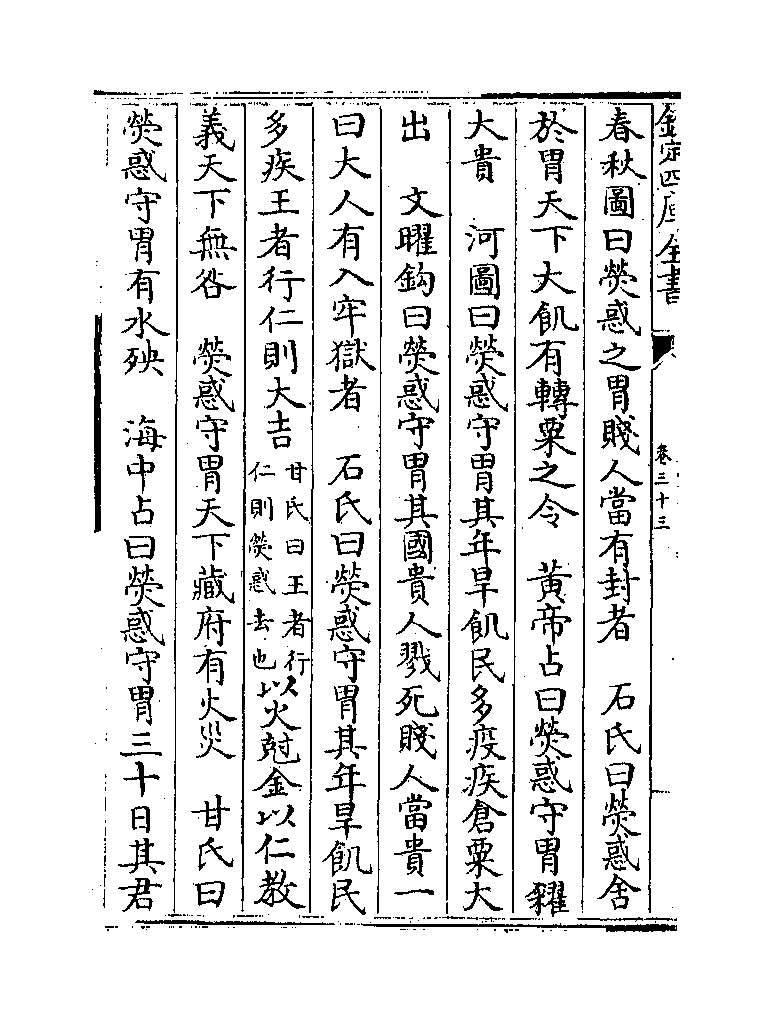 欽定四庫全書
卷三十三
春秋圖曰熒惑之胃賤人當有封者　石氏曰熒惑舍
於胃天下大飢有轉粟之令　黃帝占曰熒惑守胃糴
大貴　河圖曰熒惑守胃其年旱飢民多疫疾倉粟大
出　文曜鈎曰熒惑守胃其國貴人戮死賤人當貴一
曰大人有入牢獄者　石氏曰熒惑守胃其年旱飢民
多疾王者行仁則大吉甘氏曰王者行仁則熒惑去也以火尅金以仁教
義天下無咎　熒惑守胃天下藏府有火災　甘氏曰
熒惑守胃有水殃　海中占曰熒惑守胃三十日其君